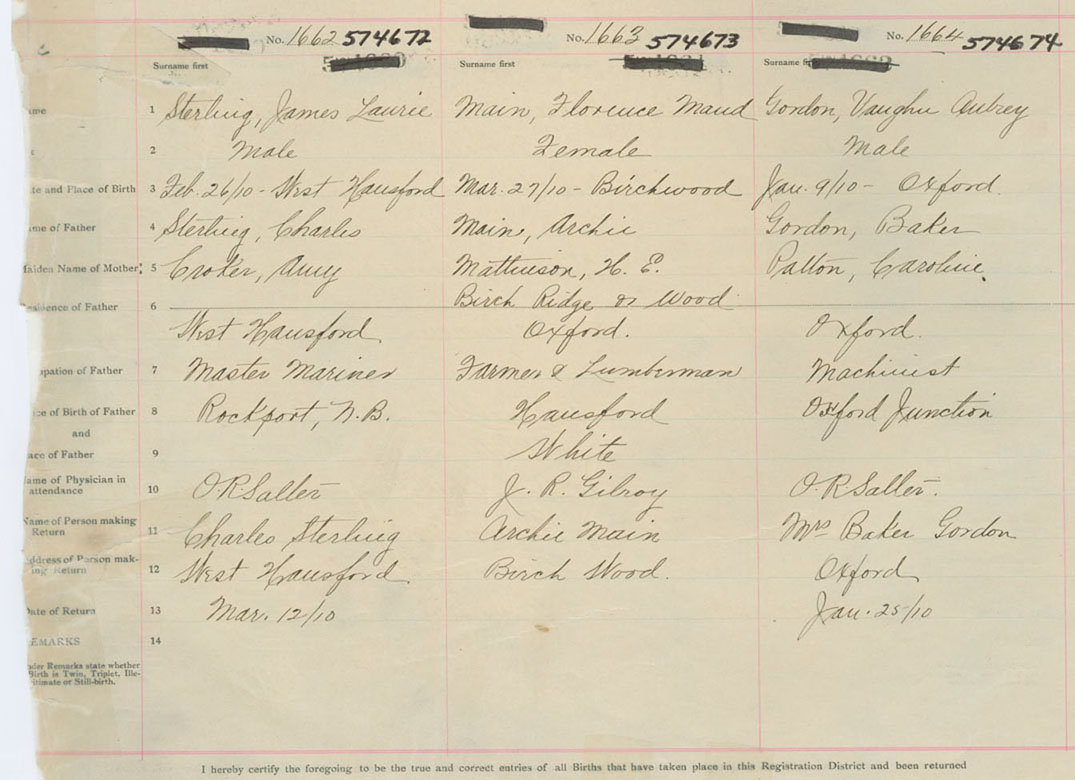 No. 1662 574672 No. 1663 574673 No. 1664 574674
Surname first Surname first Surname
ame 1 Sterling, James Laurie Main, Florence Maud Gordon, Vaughn Aubrey
2 Male Female Male
te and Place of Birth 3 Feb. 26/10 - West Hansford Mar. 27/10 - Birchwood Jan. 9/10 - Oxford.
me of Father 4 Sterling, Charles Main, Archie Gordon, Baker
aiden Name of Mother 5 Croker, Amy Mathieson, H. E. Patton, Caroline
Birch Ridge or Wood
esidence of Father 6 West Hansford Oxford. Oxford.
upation of Father 7 Master Mariner Farmer & Lumberman Machinist
ce of Birth of Father 8 Rockport, N.B. Hansford Oxford Junction
and
ace of Father 9 White
ame of Physician in
attendance 10 O R Salter J. R. Gilroy O. R Salter.
Name of Person making
Return 11 Charles Sterling Archie Main Mrs Baker Gordon
ddress of Person mak-
ing Return 12 West Hansford Birch Wood. Oxford
Date of Return 13 Mar. 12/10 Jan. 25/10
EMARKS 14
nder Remarks state whether
Birth is Twin, Triplet, Ille-
gitimate or Still-birth.
I hereby certify the foregoing to be the true and correct entries of all Births that have taken place in this Registration District and been returned